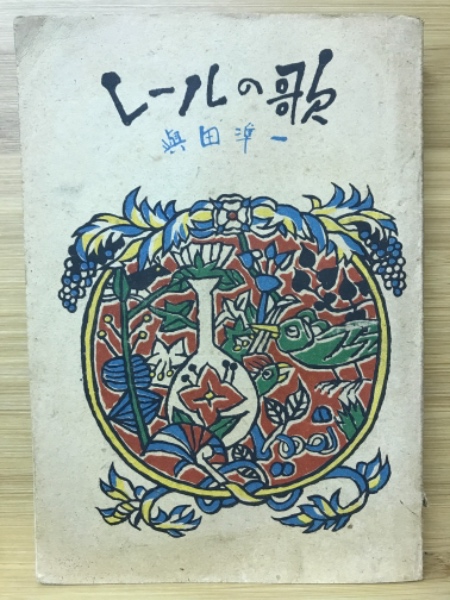 レールの歌
與田準一